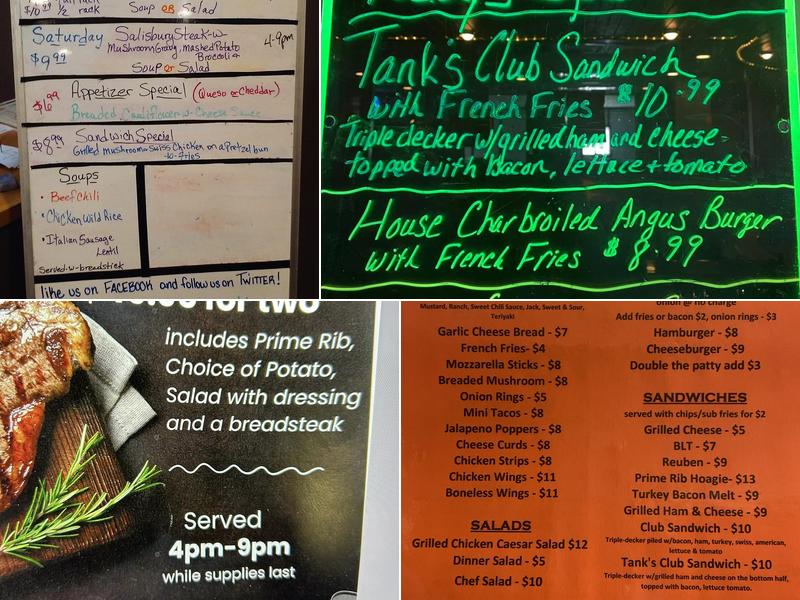 $10.99 1/2 rack
Soup OR Salad
Saturday Salisbury Steak-w- 4-9pm
$9.99 Mushroom Gravy, mashed Potato
Broccoli &
Soup or Salad
$6.99 Appetizer Special (Queso or Cheddar)
Breaded Cauliflower w- Cheese Sauce
$8.99 Sandwich Special
Grilled Mushroom & Swiss Chicken on a Pretzel bun
-w-fries
Soups
• Beef Chili
• Chicken Wild Rice
• Italian Sausage
Lentil
Served-w-breadstick
like us on FACEBOOK and follow us on TWITTER!
Tank's Club Sandwich
with French Fries $10.99
Triple decker w/grilled ham and cheese-
topped with bacon, lettuce + tomato
House Charbroiled Angus Burger
with French Fries $8.99
for two
includes Prime Rib,
Choice of Potato,
Salad with dressing
and a breadsteak
Served
4pm-9pm
while supplies last
Mustard, Ranch, Sweet Chili Sauce, Jack, Sweet & Sour,
Teriyaki
Garlic Cheese Bread - $7
French Fries- $4
Mozzarella Sticks - $8
Breaded Mushroom - $8
Onion Rings - $5
Mini Tacos - $8
Jalapeno Poppers - $8
Cheese Curds - $8
Chicken Strips - $8
Chicken Wings - $11
Boneless Wings - $11
SALADS
Grilled Chicken Caesar Salad $12
Dinner Salad - $5
Chef Salad - $10
onion @ no charge
Add fries or bacon $2, onion rings - $3
Hamburger - $8
Cheeseburger - $9
Double the patty add $3
SANDWICHES
served with chips/sub fries for $2
Grilled Cheese - $5
BLT - $7
Reuben - $9
Prime Rib Hoagie- $13
Turkey Bacon Melt - $9
Grilled Ham & Cheese - $9
Club Sandwich - $10
Triple-decker piled w/bacon, ham, turkey, swiss, american,
lettuce & tomato
Tank's Club Sandwich - $10
Triple-decker w/grilled ham and cheese on the bottom half,
topped with bacon, lettuce tomato.